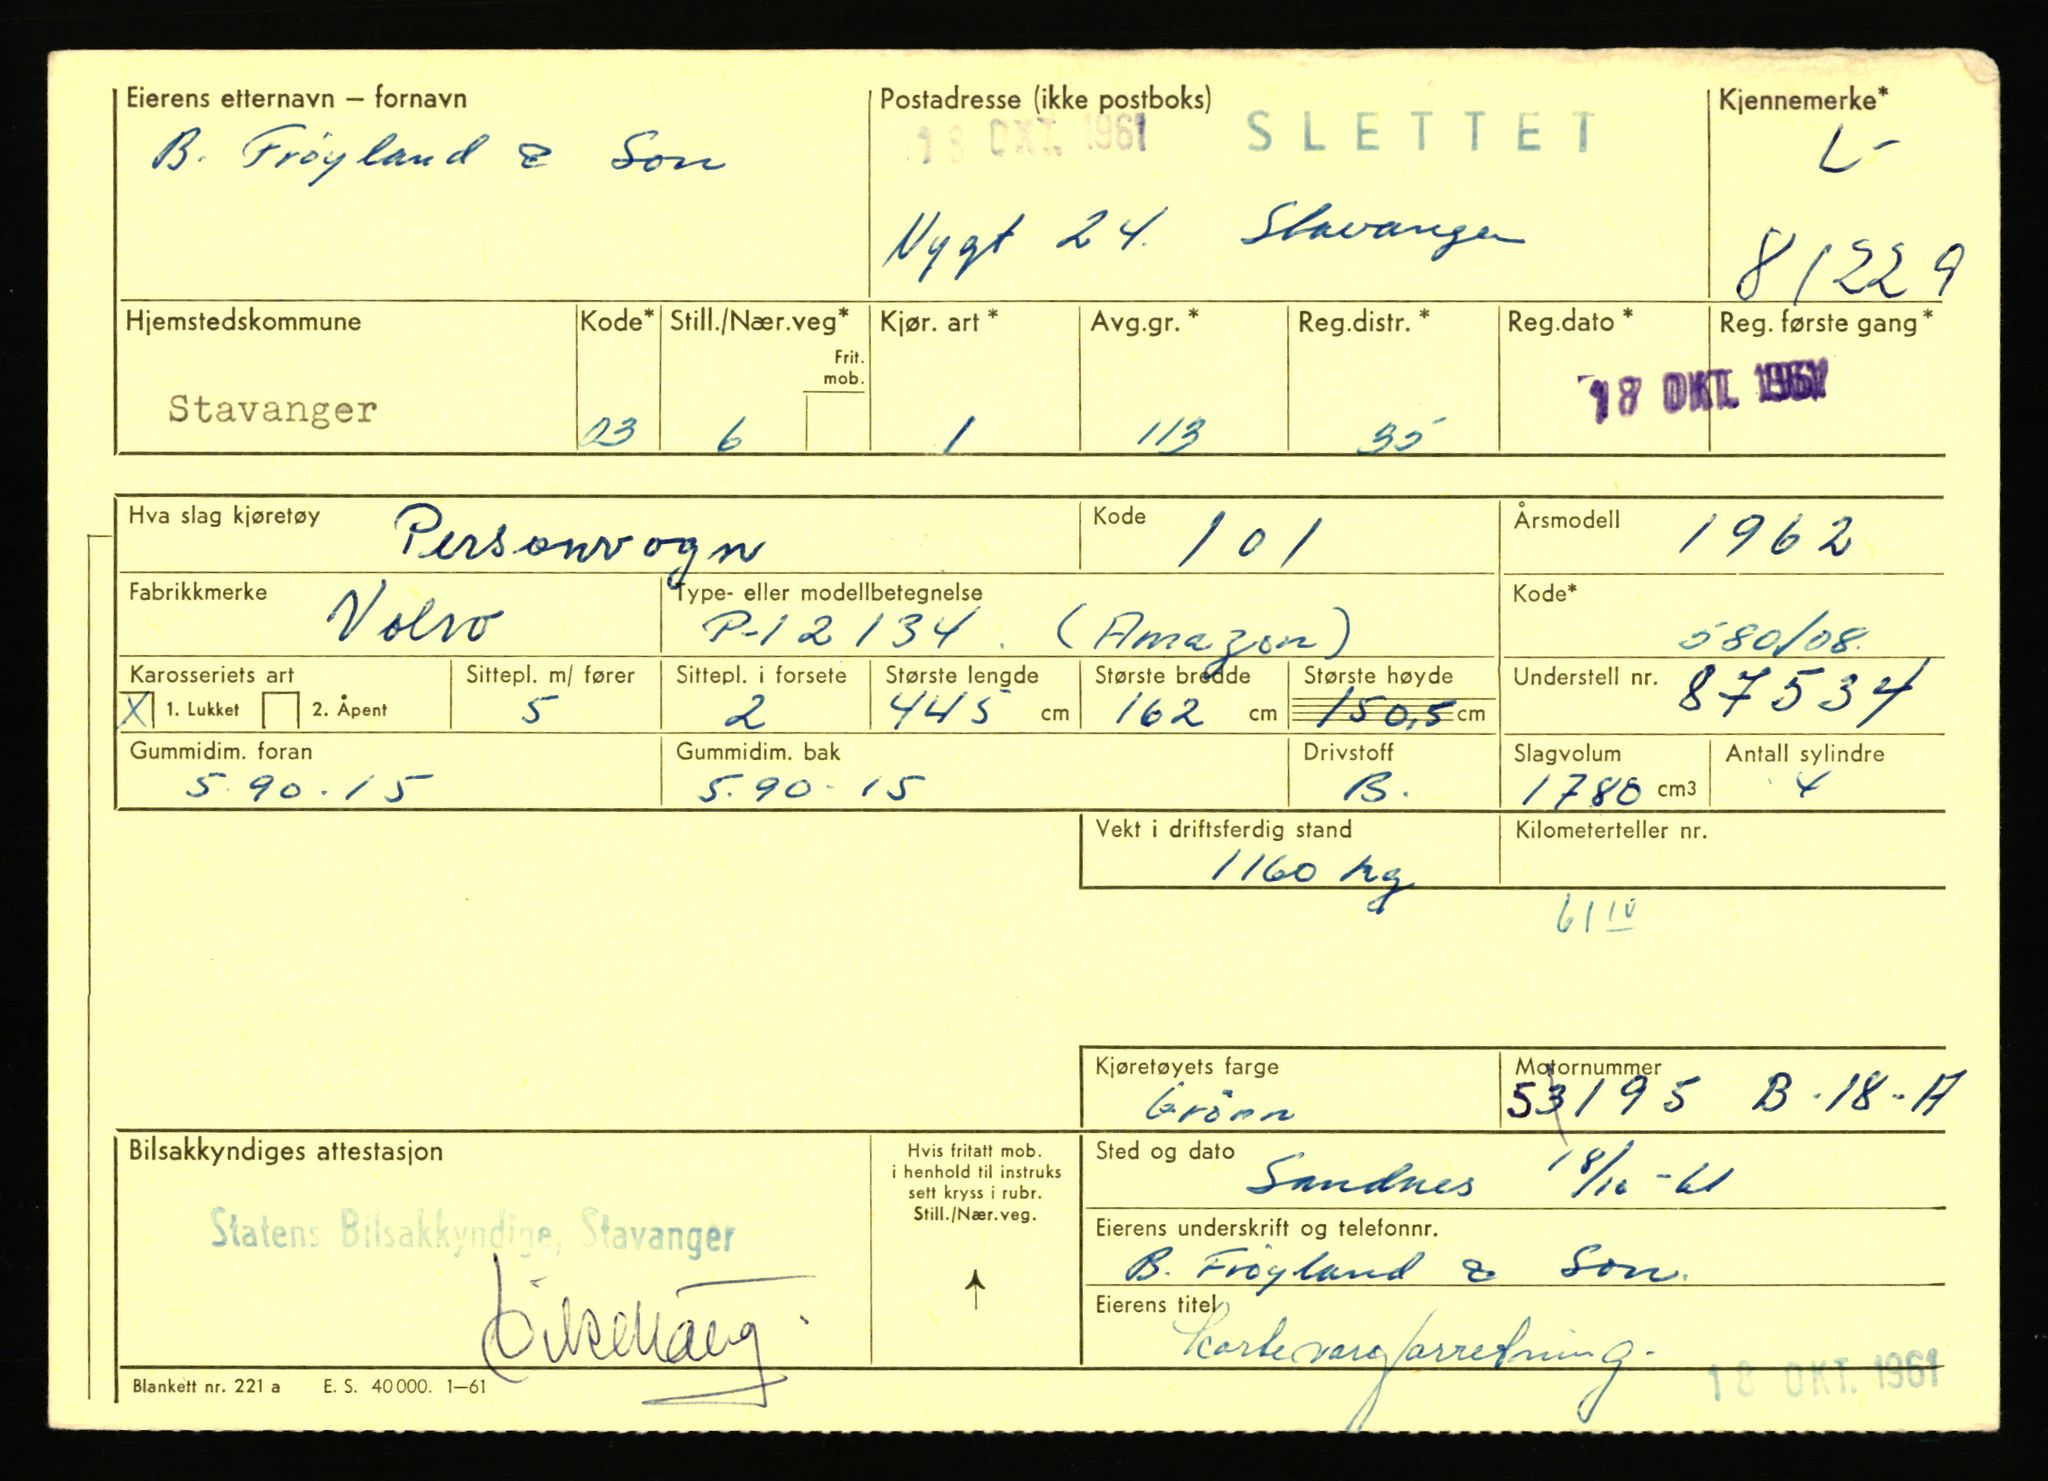 Eierens etternavn – fornavn
B. Fröyland & Son
Postadresse (ikke postboks)
18 OKT. 1961 SLETTET
Nygt 24. Stavanger
Kjennemerke*
L-
81229
Hjemstedskommune
Stavanger
Kode*
03
Still./Nær.veg*
Frit.
mob.
6
Kjør. art *
1
Avg.gr. *
113
Reg.distr. *
35
Reg.dato *
Reg. første gang *
18 OKT. 1961
Hva slag kjøretøy
Personvogn
Kode
101
Årsmodell
1962
Fabrikkmerke
Volvo
Type- eller modellbetegnelse
P-12134. (Amazon)
Kode*
580/08.
Karosseriets art
X 1. Lukket 2. Åpent
Sittepl. m/ fører
5
Sittepl. i forsete
2
Største lengde
445 cm
Største bredde
162 cm
Største høyde
150,5 cm
Understell nr. 87534
Gummidim. foran
5.90.15
Gummidim. bak
5.90.15
Drivstoff
B.
Slagvolum
1780 cm3
Antall sylindre
4
Vekt i driftsferdig stand
1160 kg
Kilometerteller nr.
61 10
Kjøretøyets farge
Grönn
Motornummer
53195 B-18-A
Bilsakkyndiges attestasjon
Statens Bilsakkyndige, Stavanger
Hvis fritatt mob.
i henhold til instruks
sett kryss i rubr.
Still./Nær.veg.
↑
Sted og dato
Sandnes 18/10-61
Eierens underskrift og telefonnr.
B. Fröyland & Son.
Eierens titel
18 OKT. 1961
Blankett nr. 221 a E. S. 40 000. 1–61